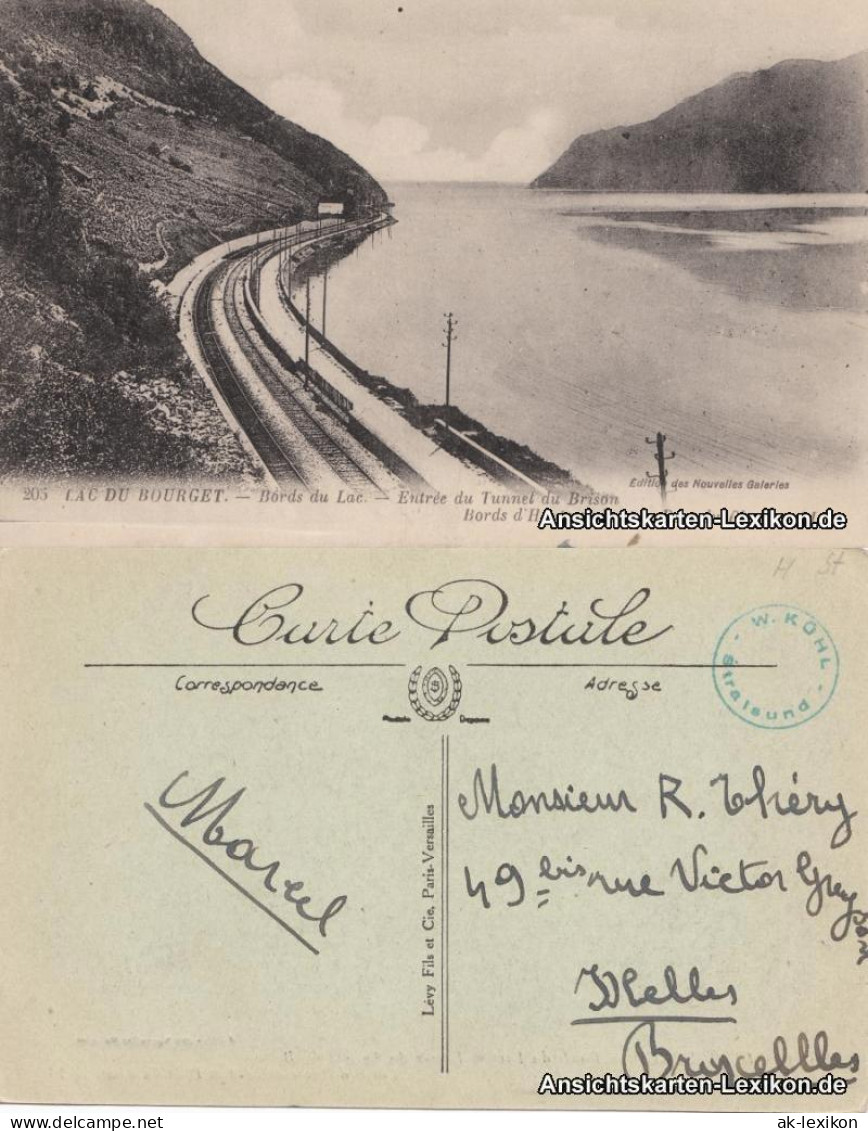 Edition des Nouvelles Galeries
205 LAC DU BOURGET. — Bords du Lac. — Entrée du Tunnel du Brison
Bords
Ansichtskarten-Lexikon.de
H St
Carte Postale
W. KÖHL
Stralsund
Correspondance
Adresse
Marcel
Lévy Fils et Cie, Paris-Versailles
Monsieur R. Théry
49 bis rue Victor Greyson
Ixelles
Bruxelles
Ansichtskarten-Lexikon.de
www.ansichtskarten-lexikon.de
ak-lexikon